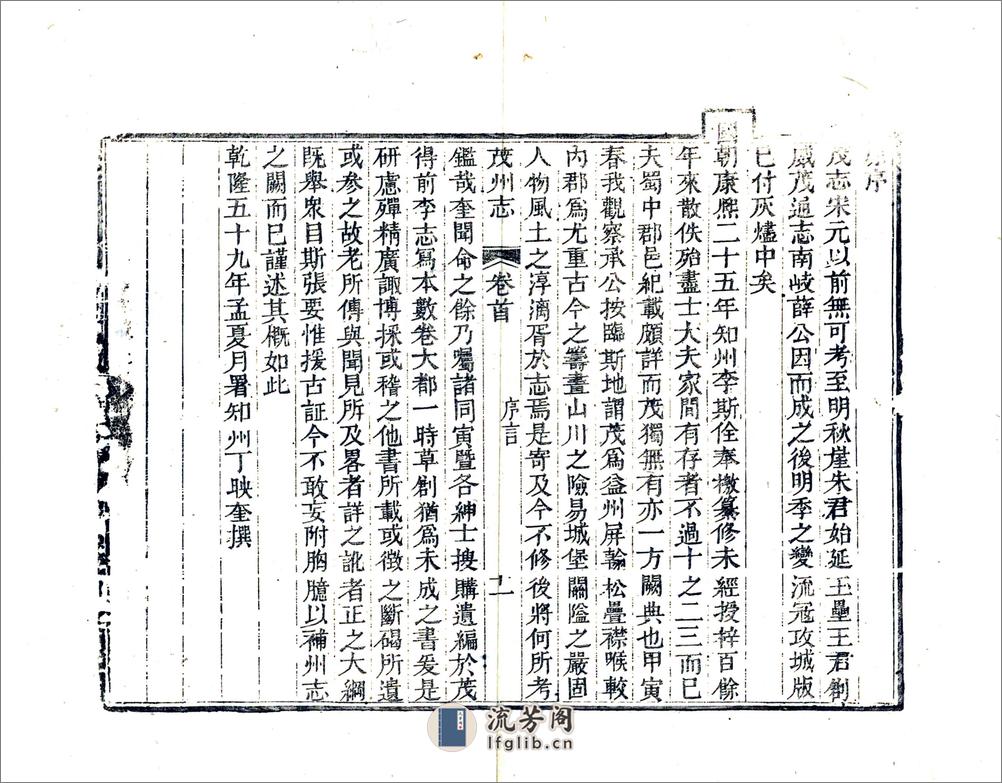 序
茂志宋元以前無可考至明秋崖朱君始延王壘王君創
威茂通志南岐薛公因而成之後明季之變流寇攻城版
已付灰燼中矣
國朝康熙二十五年知州李斯佺奉檄纂修未經授梓百餘
年來散佚殆盡士大夫家間有存者不過十之二三而已
夫蜀中郡邑紀載頗詳而茂獨無有亦一方闕典也甲寅
春我觀察承公按臨斯地謂茂為益州屏翰松疊襟喉較
內郡為尤重古今之籌畫山川之險易城堡關隘之嚴固
人物風土之淳漓胥於志焉是寄及今不修後將何所考
茂州志
卷首
序言
二
鑑哉奎聞命之餘乃囑諸同寅暨各紳士搜購遺編於茂
得前李志寫本數卷大都一時草創猶為未成之書爰是
研慮殫精廣諏博採或稽之他書所載或徵之斷碣所遺
或參之故老所傳與聞見所及畧者詳之訛者正之大綱
既舉衆目斯張要惟援古証今不敢妄附胸臆以補州志
之闕而已謹述其概如此
乾隆五十九年孟夏月署知州丁映奎撰
流芳閣
lfglib.cn